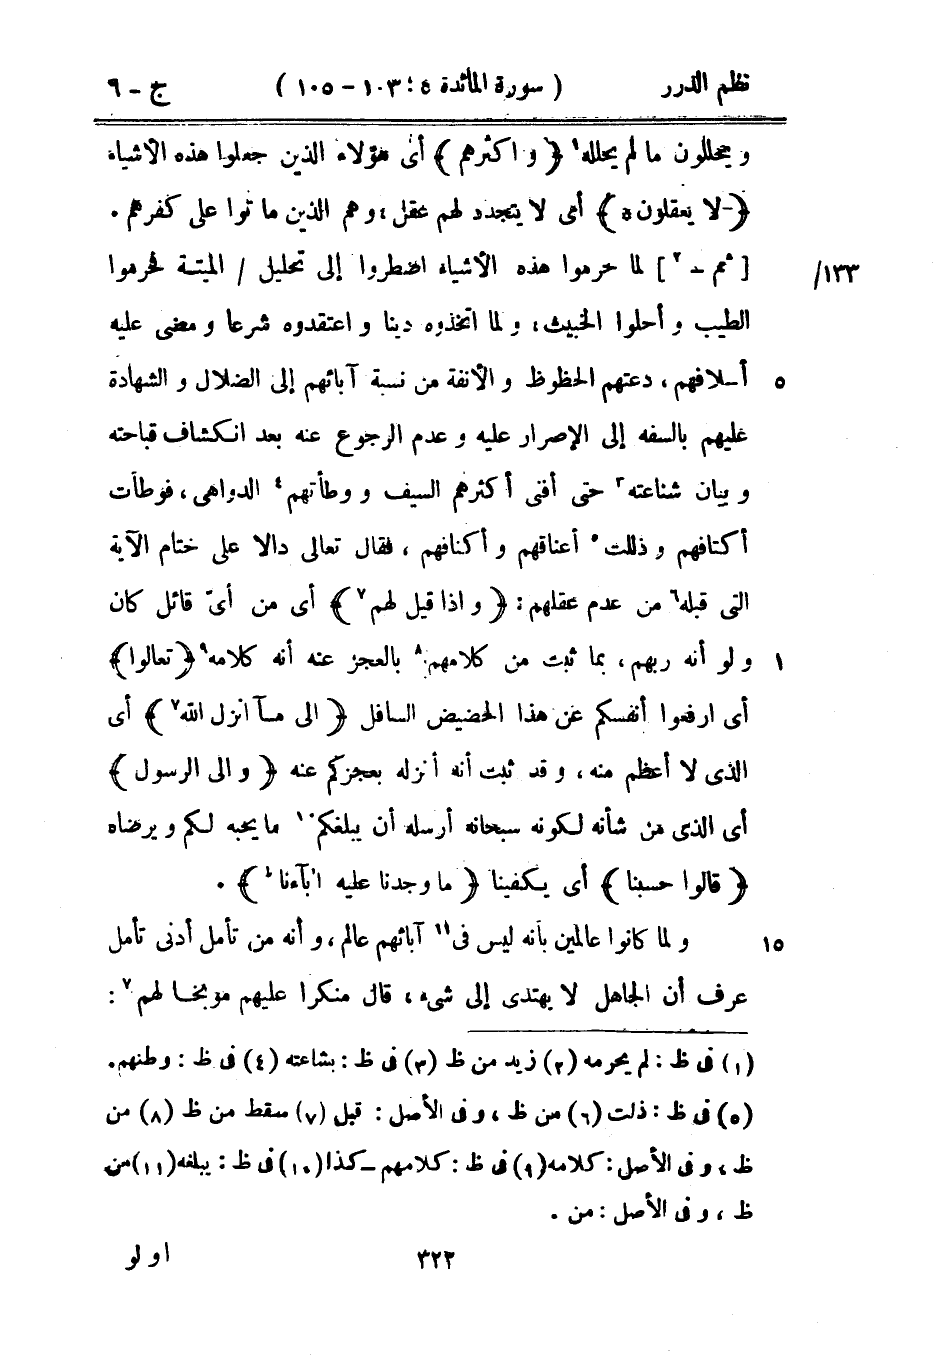 نظم الدرر ( سورة المائدة ٤ : ١٠٣ – ١٠٥ ) ج – ٦
و يحللون ما لم يحلله١ ﴿ و اكثرهم ﴾ أى هؤلاء الذين جعلوا هذه الأشياء
﴿ – لا يعقلون ه ﴾ أى لا يتجدد لهم عقل ، و هم الذين ماتوا على كفرهم .
[ ثم – ٢ ] لما حرموا هذه الأشياء اضطروا إلى تحليل / الميتة فحرموا /١٣٣
الطيب و أحلوا الخبيث ، و لما اتخذوه دينا و اعتقدوه شرعا و مضى عليه
أسلافهم ، دعتهم الحظوظ و الأنفة من نسبة آبائهم إلى الضلال و الشهادة ٥
عليهم بالسفه إلى الإصرار عليه و عدم الرجوع عنه بعد انكشاف قباحته
و بيان شناعته٣ حتى أفنى أكثرهم السيف و وطأتهم٤ الدواهى ، فوطأت
أكتافهم و ذللت٥ أعناقهم و أكنافهم ، فقال تعالى دالا على ختام الآية
التى قبله٦ من عدم عقلهم : ﴿ و اذا قيل لهم٧ ﴾ أى من أىّ قائل كان
و لو أنه ربهم ، بما ثبت من كلامهم٨ بالعجز عنه أنه كلامه٩ ﴿ تعالوا ﴾ ١
أى ارفعوا أنفسكم عن هذا الحضيض السافل ﴿ الى مآ انزل الله٧ ﴾ أى
الذى لا أعظم منه ، و قد ثبت أنه أنزله بعجزكم عنه ﴿ و الى الرسول ﴾
أى الذى من شأنه لكونه سبحانه أرسله أن يبلغكم١٠ ما يحبه لكم و يرضاه
﴿ قالوا حسبنا ﴾ أى يكفينا ﴿ ما وجدنا عليه اٰبآءنا ط ﴾ .
و لما كانوا عالمين بأنه ليس فى١١ آبائهم عالم ، و أنه من تأمل أدنى تأمل ١٥
عرف أن الجاهل لا يهتدى إلى شىء ، قال منكرا عليهم موبخا لهم٧ :
(١) فى ظ : لم يحرمه (٢) زيد من ظ (٣) فى ظ : بشاعته (٤) فى ظ : وطنهم .
(٥) فى ظ : ذلت (٦) من ظ ، و فى الأصل : قبل (٧) سقط من ظ (٨) من
ظ ، و فى الأصل : كلامه (٩) فى ظ : كلامهم – كذا (١٠) فى ظ : يبلغه (١١) من
ظ ، و فى الأصل : من .
٣٢٢ او لو